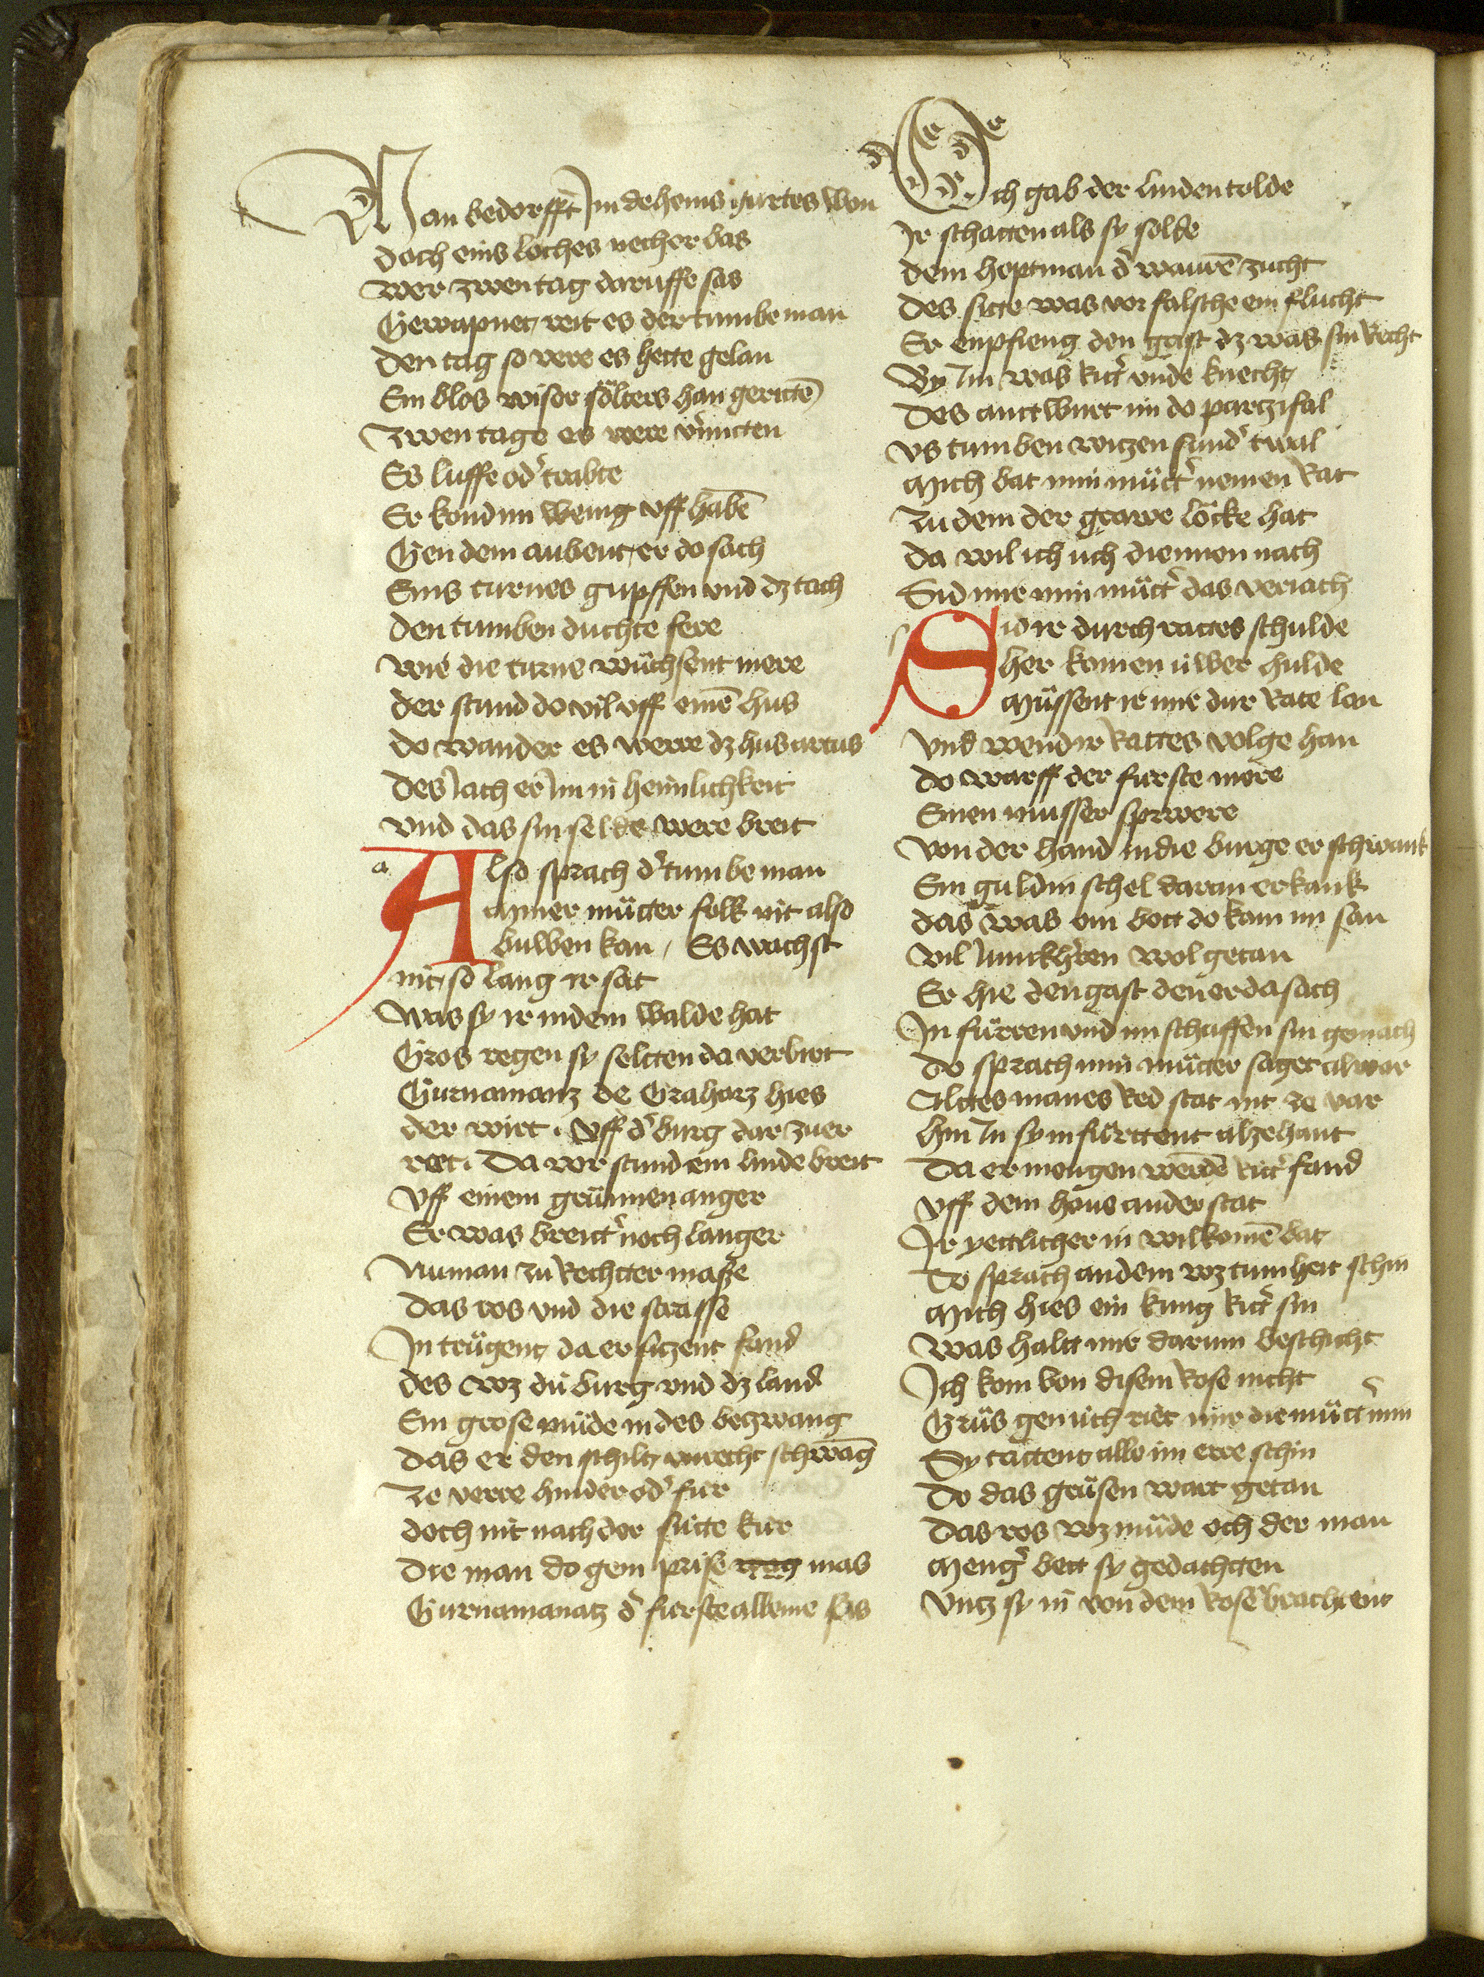 Man bedorfft Im deheins gurtes won
doch eins loches necher bas
wer zwen tag daruffe sas
Gewapnet reit es der tumbe man
den tag so vere es hette gelan
Ein blos wiser sölters han gerittē
Zwen tage es were v̓mitten
Es luffe od̓ trabte
Er kond im wenig vff habē
Gen dem aubent er do sach
Eins turnes gupffen vnd dz tach
den tumben duchte sere
wie die turne wüchsent mere
der stund do vil vff einē hus
do wander es werre dz hus artus
des Iach er Im in heimlichkeit
vnd das sin selde were breit
a
Also sprach d̓ tumbe man
miner mütter folk nit also
buwen kan / Es wachst
nit so lang ir sat
was sy ir in dem walde hat
Gros regen sy seltten da verbirt
Gurnamanz de Grahorz hies
der wirt . Vff d̓ burg dar zuer
reet . Da vor stund ein linde breit
Vff einem grünnen anger
Er was breitt̓ noch langer
Numan zu Rechtter maße
das ros vnd die strasse
In trügent da er sitzent fand
des wz dü burg vnd dz land
Ein grose müde in des bezwang
das er den schilt vnrecht schwāg
Ze verre hinder od̓ fur
doch nit nach der sitte kur
die man do gem prise wag mas
Gurnamanatz d̓ furste alleine sas
Ich gab der linden tolde
Ir schatten als sy solde
dem hoptman d̓ waurē zucht
des sitte was vor falsche ein flucht
Er enpfieng den gast dz was sin Recht
By Im was Ritt̓ vnde knecht
des anttwurt im do partzifal
vs tumben witzen sund̓ twal
mich bat min mütt̓ nemen Rat
zu dem der grawe löcke hat
da wil ich üch diennen nach
Sid mir min mütt̓ das veriach
s
Sid ir durch rattes schulde
her komen üwer hulde
müssent ir mir dur Rate lan
vnd wend ir Rattes volge han
do warff der furste mere
Einen musser sprwere
von der hand in die burge er schwank
Ein guldin schel daran erkank
das was ein bott do kam im san
vil Iunckh̓ren wol getan
Er hie den gast den er da sach
In fürren vnd im schaffen sin gemach
do sprach min mütter saget al war
Alttes manes Red stat nit ze var
hin In sy in fürttent alzehant
da er mengen werdē Ritt̓ fand
vff dem houe an der stat
Ir yettlicher in wilkomē bat
do sprach an dem wz tumheit schin
mich hies ein kung Ritt̓ sin
was haltt mir darum beschicht
Ich kom von disem Rose nicht
Grüs gen üch riet mir die mütt̓ min
Sy tattent allo im erre schin
do das grüsen wart getan
das ros wz müde och der man
meng̓ bett sy gedachtten
vntz sy in von dem Rose brachtent